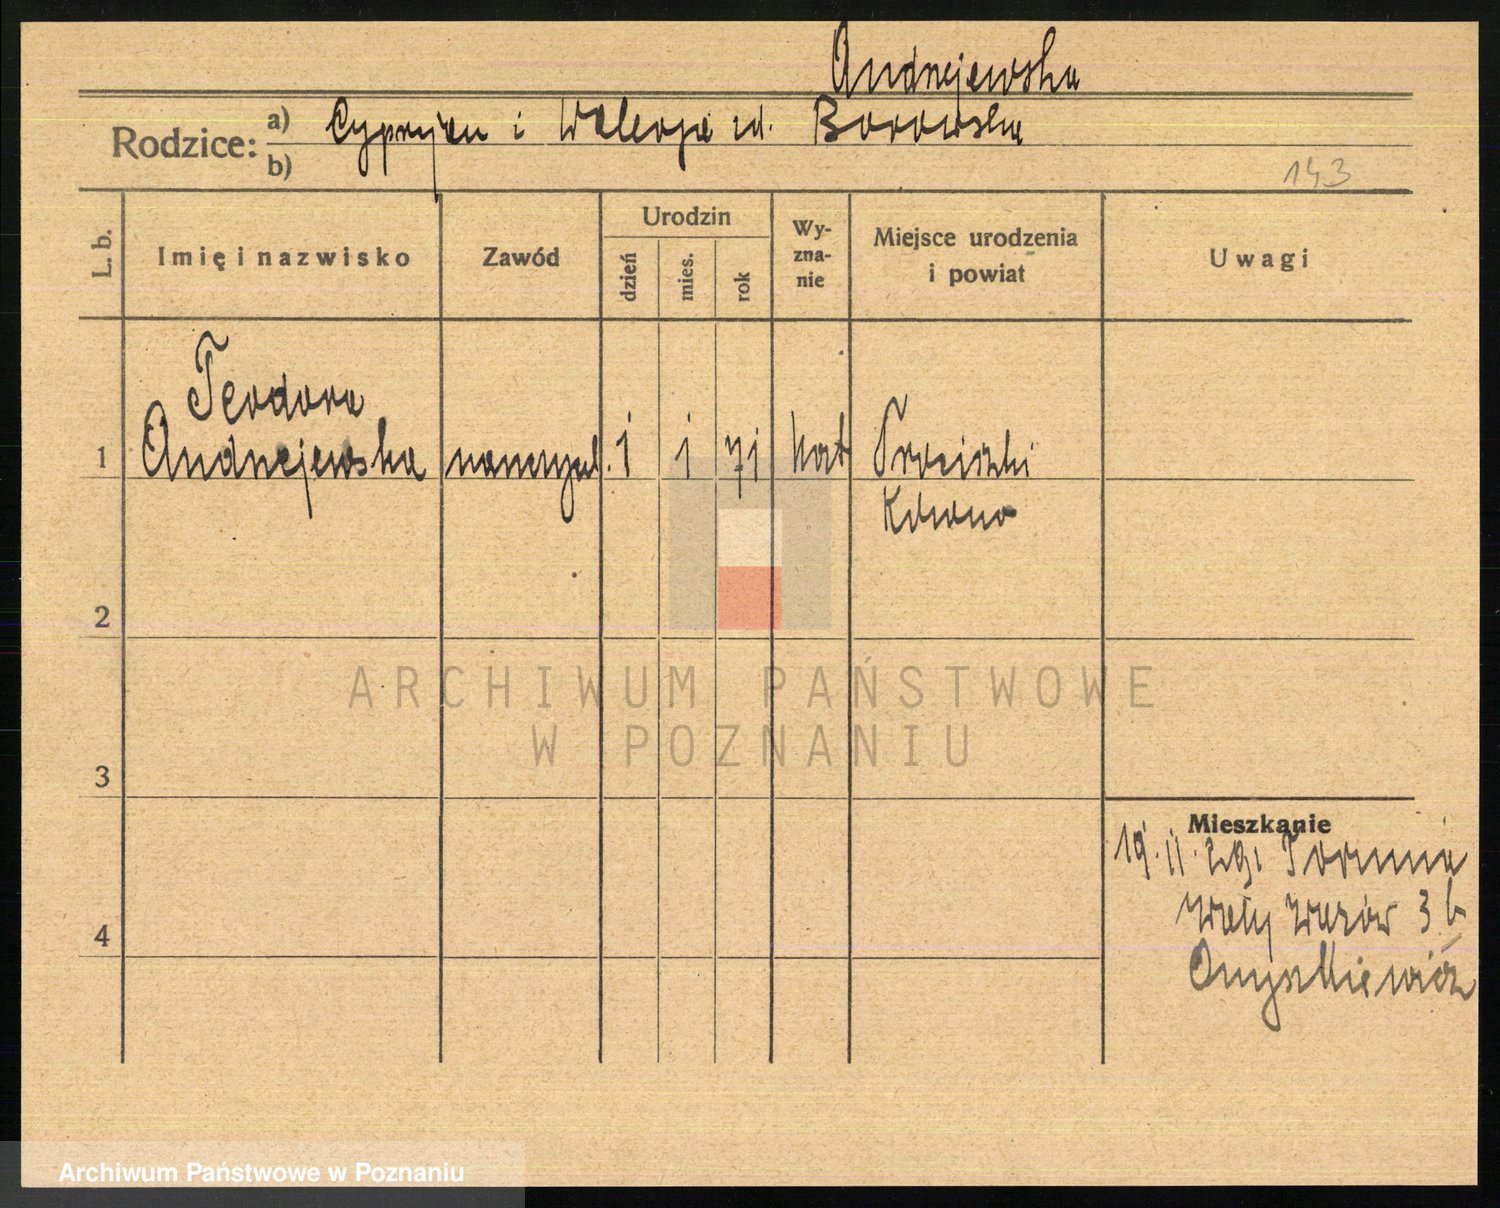 Andrzejewska
Rodzice: a) Cypryjan i Waleryja zd. Borowska
b)
143
L. b. Imię i nazwisko Zawód Urodzin dzień mies. rok Wyznanie Miejsce urodzenia i powiat Uwagi
Teodora
1 Andrzejewska nauczyciel. 1 1 71 kat
Kowno
2
ARCHIWUM PAŃSTWOWE
W POZNANIU
3
Mieszkanie
19.11.29. Torunia
Wały Wazów 3 b
4
Archiwum Państwowe w Poznaniu